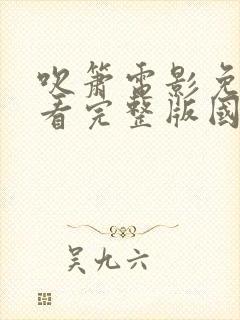 吹箫电影免
看完整版国
吴九六